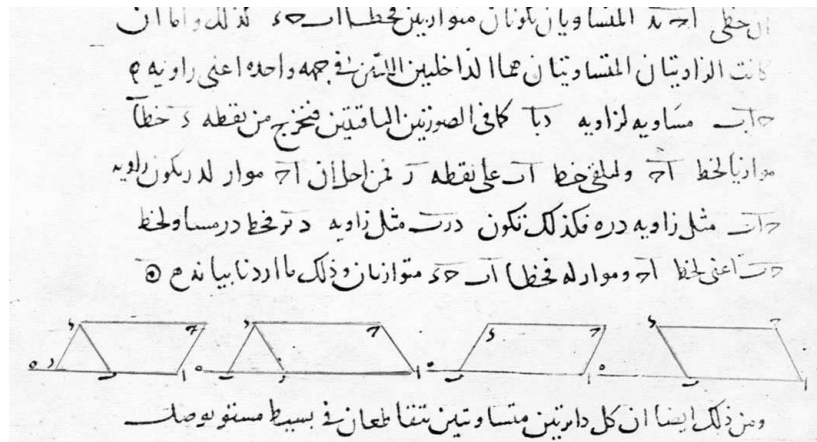 ان خطى اج ند المتساويان يكونان متوازيين فخطا اب حء كذلك واما ان
كانت الزاويتان المتساويتان هما الداخلتين اللتين فى جهه واحده اعنى زاويه
حاب مساويه لزاويه دبا كما فى الصورتين الباقيتين فنخرج من نقطه ء خطا
موازيا لخط اج وليلقى خط اب على نقطه ر فمن اجل ان اج مواز لدر يكون زاويه
حاب مثل زاويه دره فكذلك تكون درب مثل زاويه دبر فخط در مساو لخط
دب اعنى لخط اج ومواز له فخطا اب حء متوازيان وذلك ما اردنا بيانه
ومن ذلك ايضا ان كل دايرتين متساويتين تتقاطعان فى بسيط مستو يوصل